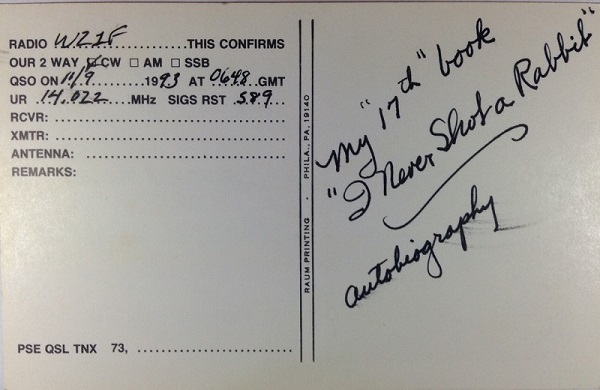 RADIO WZ1F THIS CONFIRMS
OUR 2 WAY ☑ CW ☐ AM ☐ SSB
QSO ON 11/9 1993 AT 0648 GMT
UR 14.022 MHz SIGS RST 589
RCVR:
XMTR:
ANTENNA:
REMARKS:
PSE QSL TNX 73,
RAUM PRINTING - PHILA., PA. 19140
My "17th" book
"I Never Shot a Rabbit"
autobiography